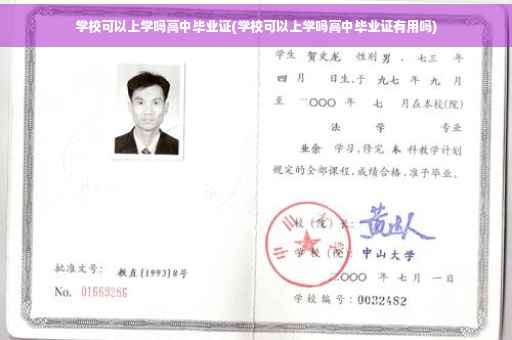 学校可以上学吗高中毕业证(学校可以上学吗高中毕业证有用吗)
学生 贺文龙 性别 男 、七三 年
四 月 日生,于 九七 年 九 月
至 二〇〇〇 年 七 月在本校(院)
法 学 专业
业余 学习,修完 本 科教学计划
规定的全部课程,成绩合格,准予毕业。
校(院)长:
学校(院): 中山大学
二〇〇〇 年 七 月 一 日
学校编号: 0032482
批准文号: 教直[1993]8号
No. 01663286